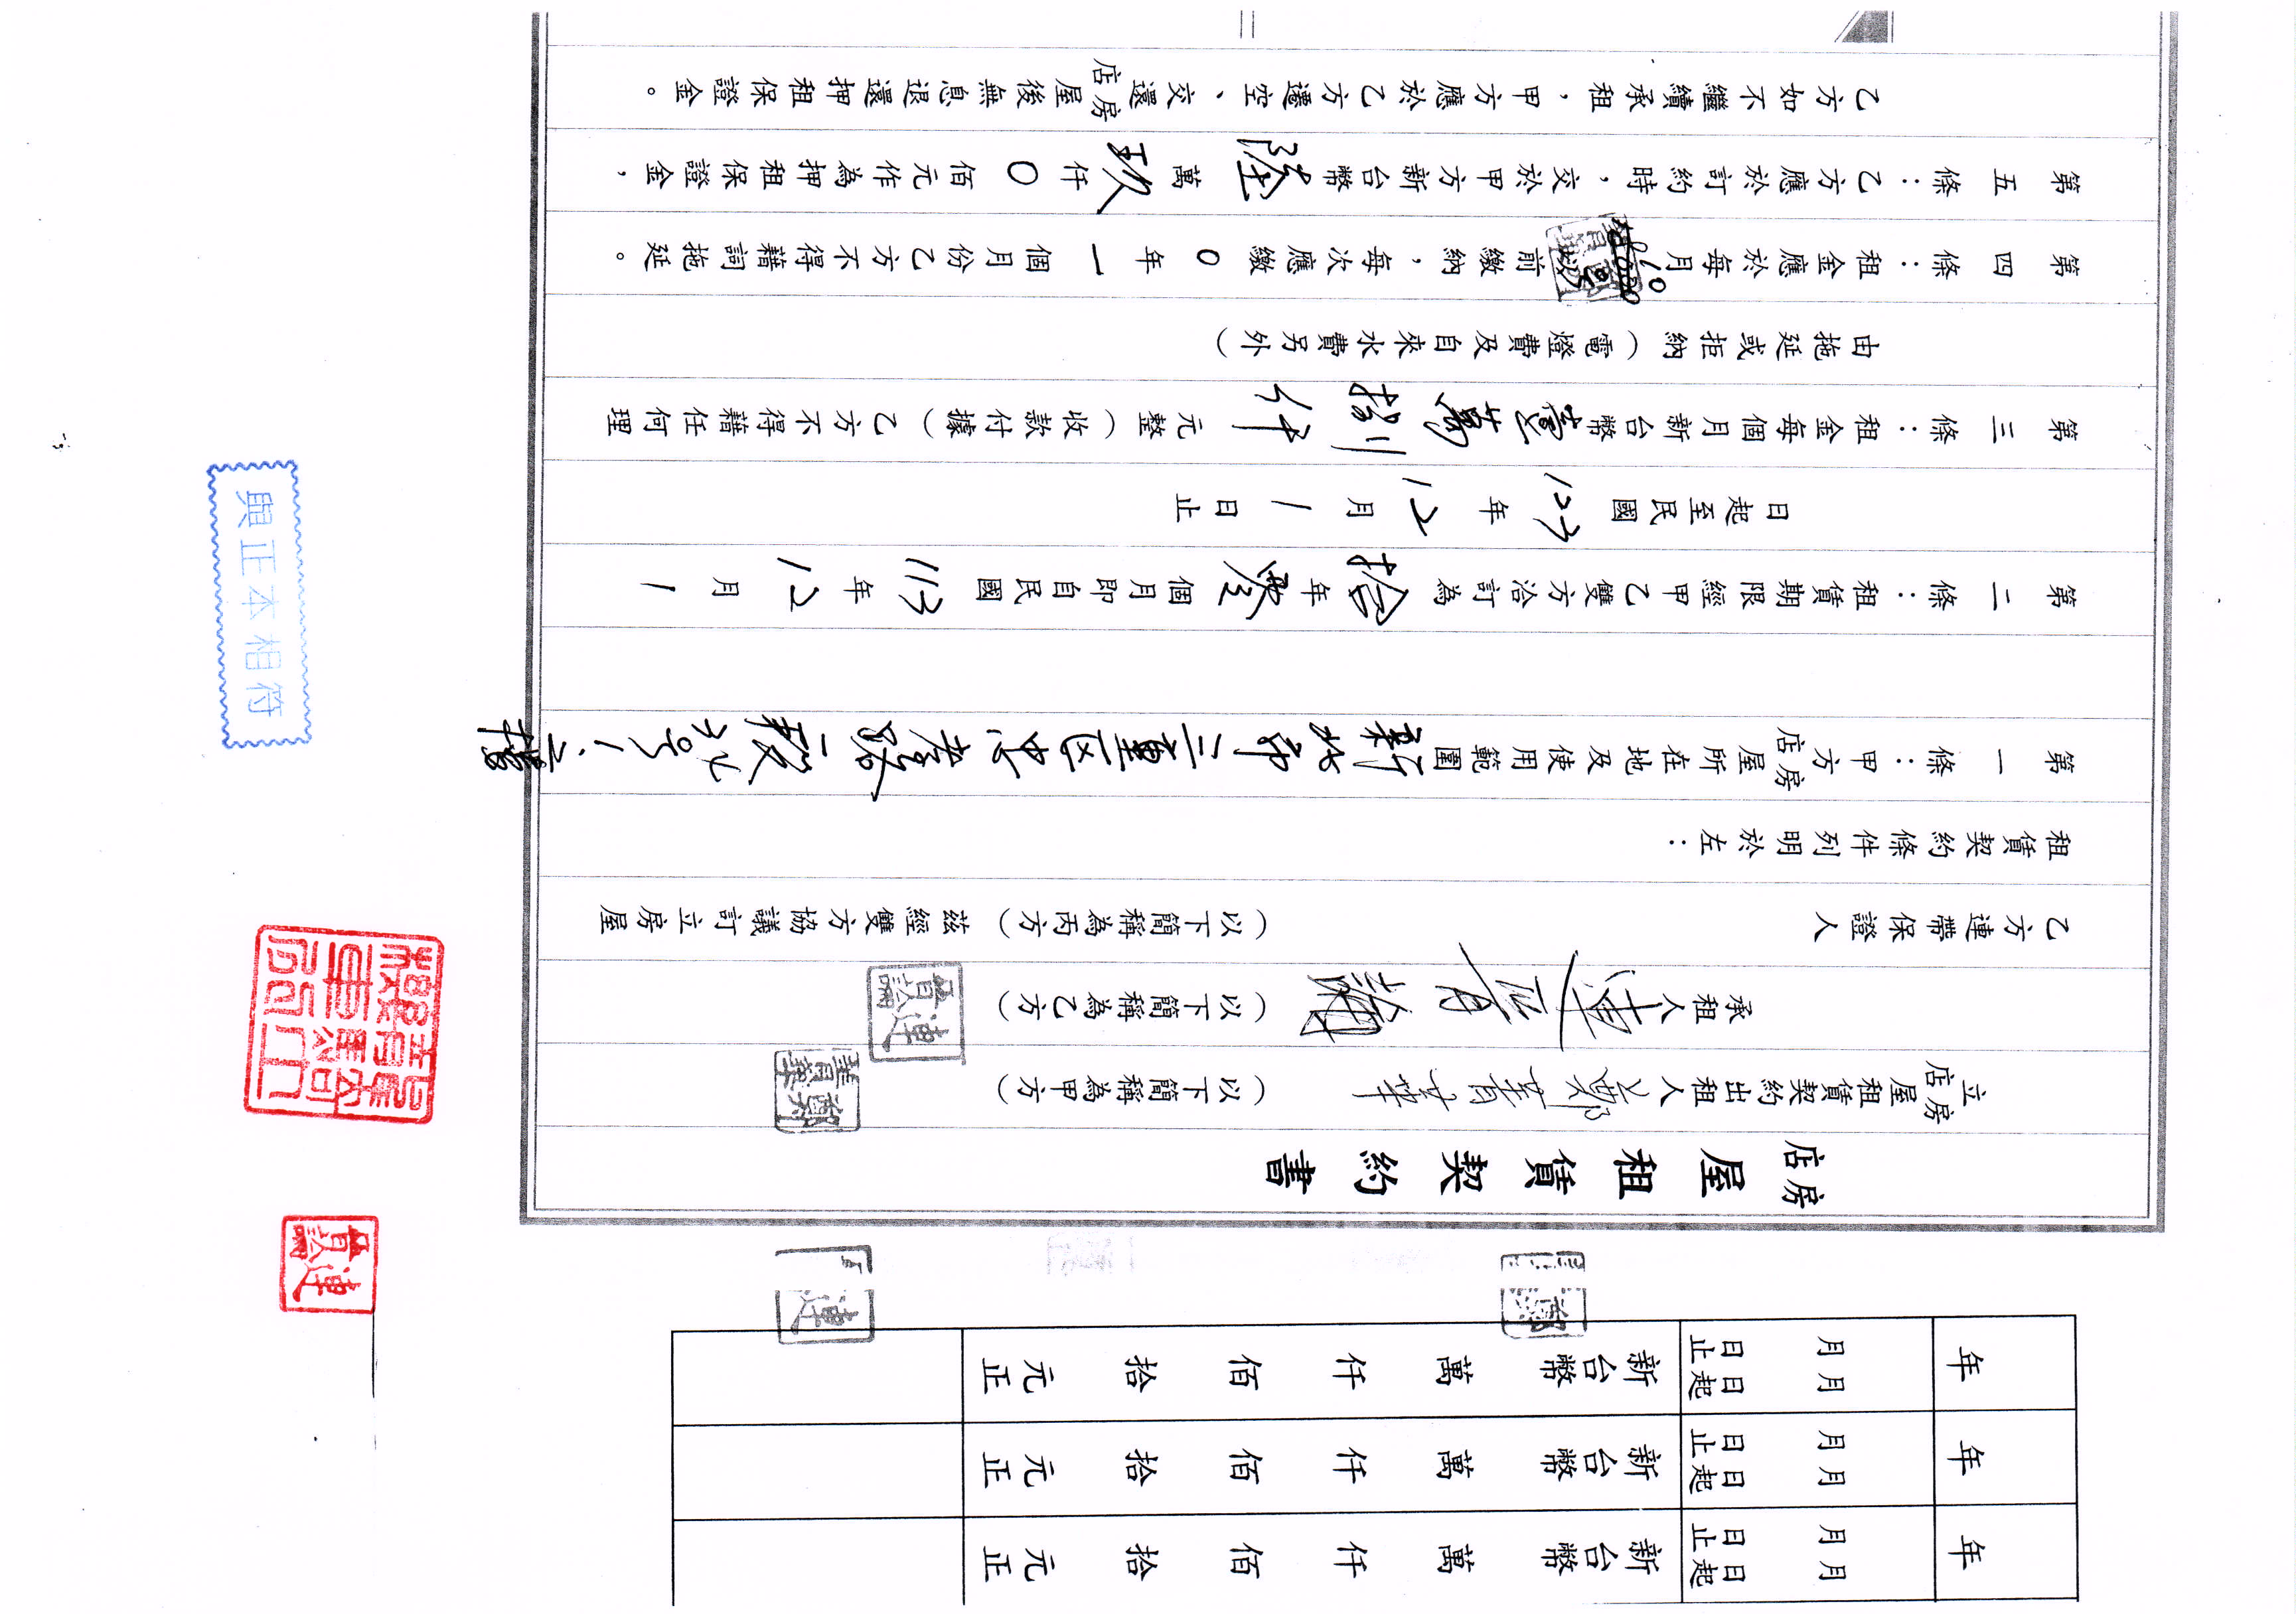 房店屋租賃契約書
立房店屋租賃契約出租人 鄭菁華 (以下簡稱為甲方)
承租人 連 (以下簡稱為乙方)
乙方連帶保證人 (以下簡稱為丙方) 茲經雙方協議訂立房屋
租賃契約條件列明於左：
第一條：甲方房店屋所在地及使用範圍 新北市三重区忠孝路一段 號1、2樓
第二條：租賃期限經甲乙雙方洽訂為 拾 年 零 個月即自民國 113 年 12 月 1
日起至民國 123 年 12 月 1 日止
第三條：租金每個月新台幣 壹萬捌仟 元整（收款付據）乙方不得藉任何理
由拖延或拒納（電燈費及自來水費另外）
第四條：租金應於每月 10 前繳納，每次應繳 0 年 一 個月份乙方不得藉詞拖延。
第五條：乙方應於訂約時，交於甲方新台幣 陸 萬 玖 仟 0 佰元作為押租保證金，
乙方如不繼續承租，甲方應於乙方遷空、交還房店屋後無息退還押租保證金。
與正本相符
年 月 日起 月 日止 新台幣 萬 仟 佰 拾 元正
年 月 日起 月 日止 新台幣 萬 仟 佰 拾 元正
年 月 日起 月 日止 新台幣 萬 仟 佰 拾 元正